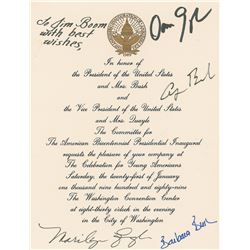 To Jim Boom
with best
wishes,
In honor of
the President of the United States
and Mrs. Bush
and
the Vice President of the United States
and Mrs. Quayle
The Committee for
The American Bicentennial Presidential Inaugural
requests the pleasure of your company at the
Celebration for Young Americans
Saturday, the twenty-first of January
one thousand nine hundred and eighty-nine
The Washington Convention Center
at eight-thirty o'clock in the evening
in the City of Washington
Barbara Bush
Marilyn Quayle